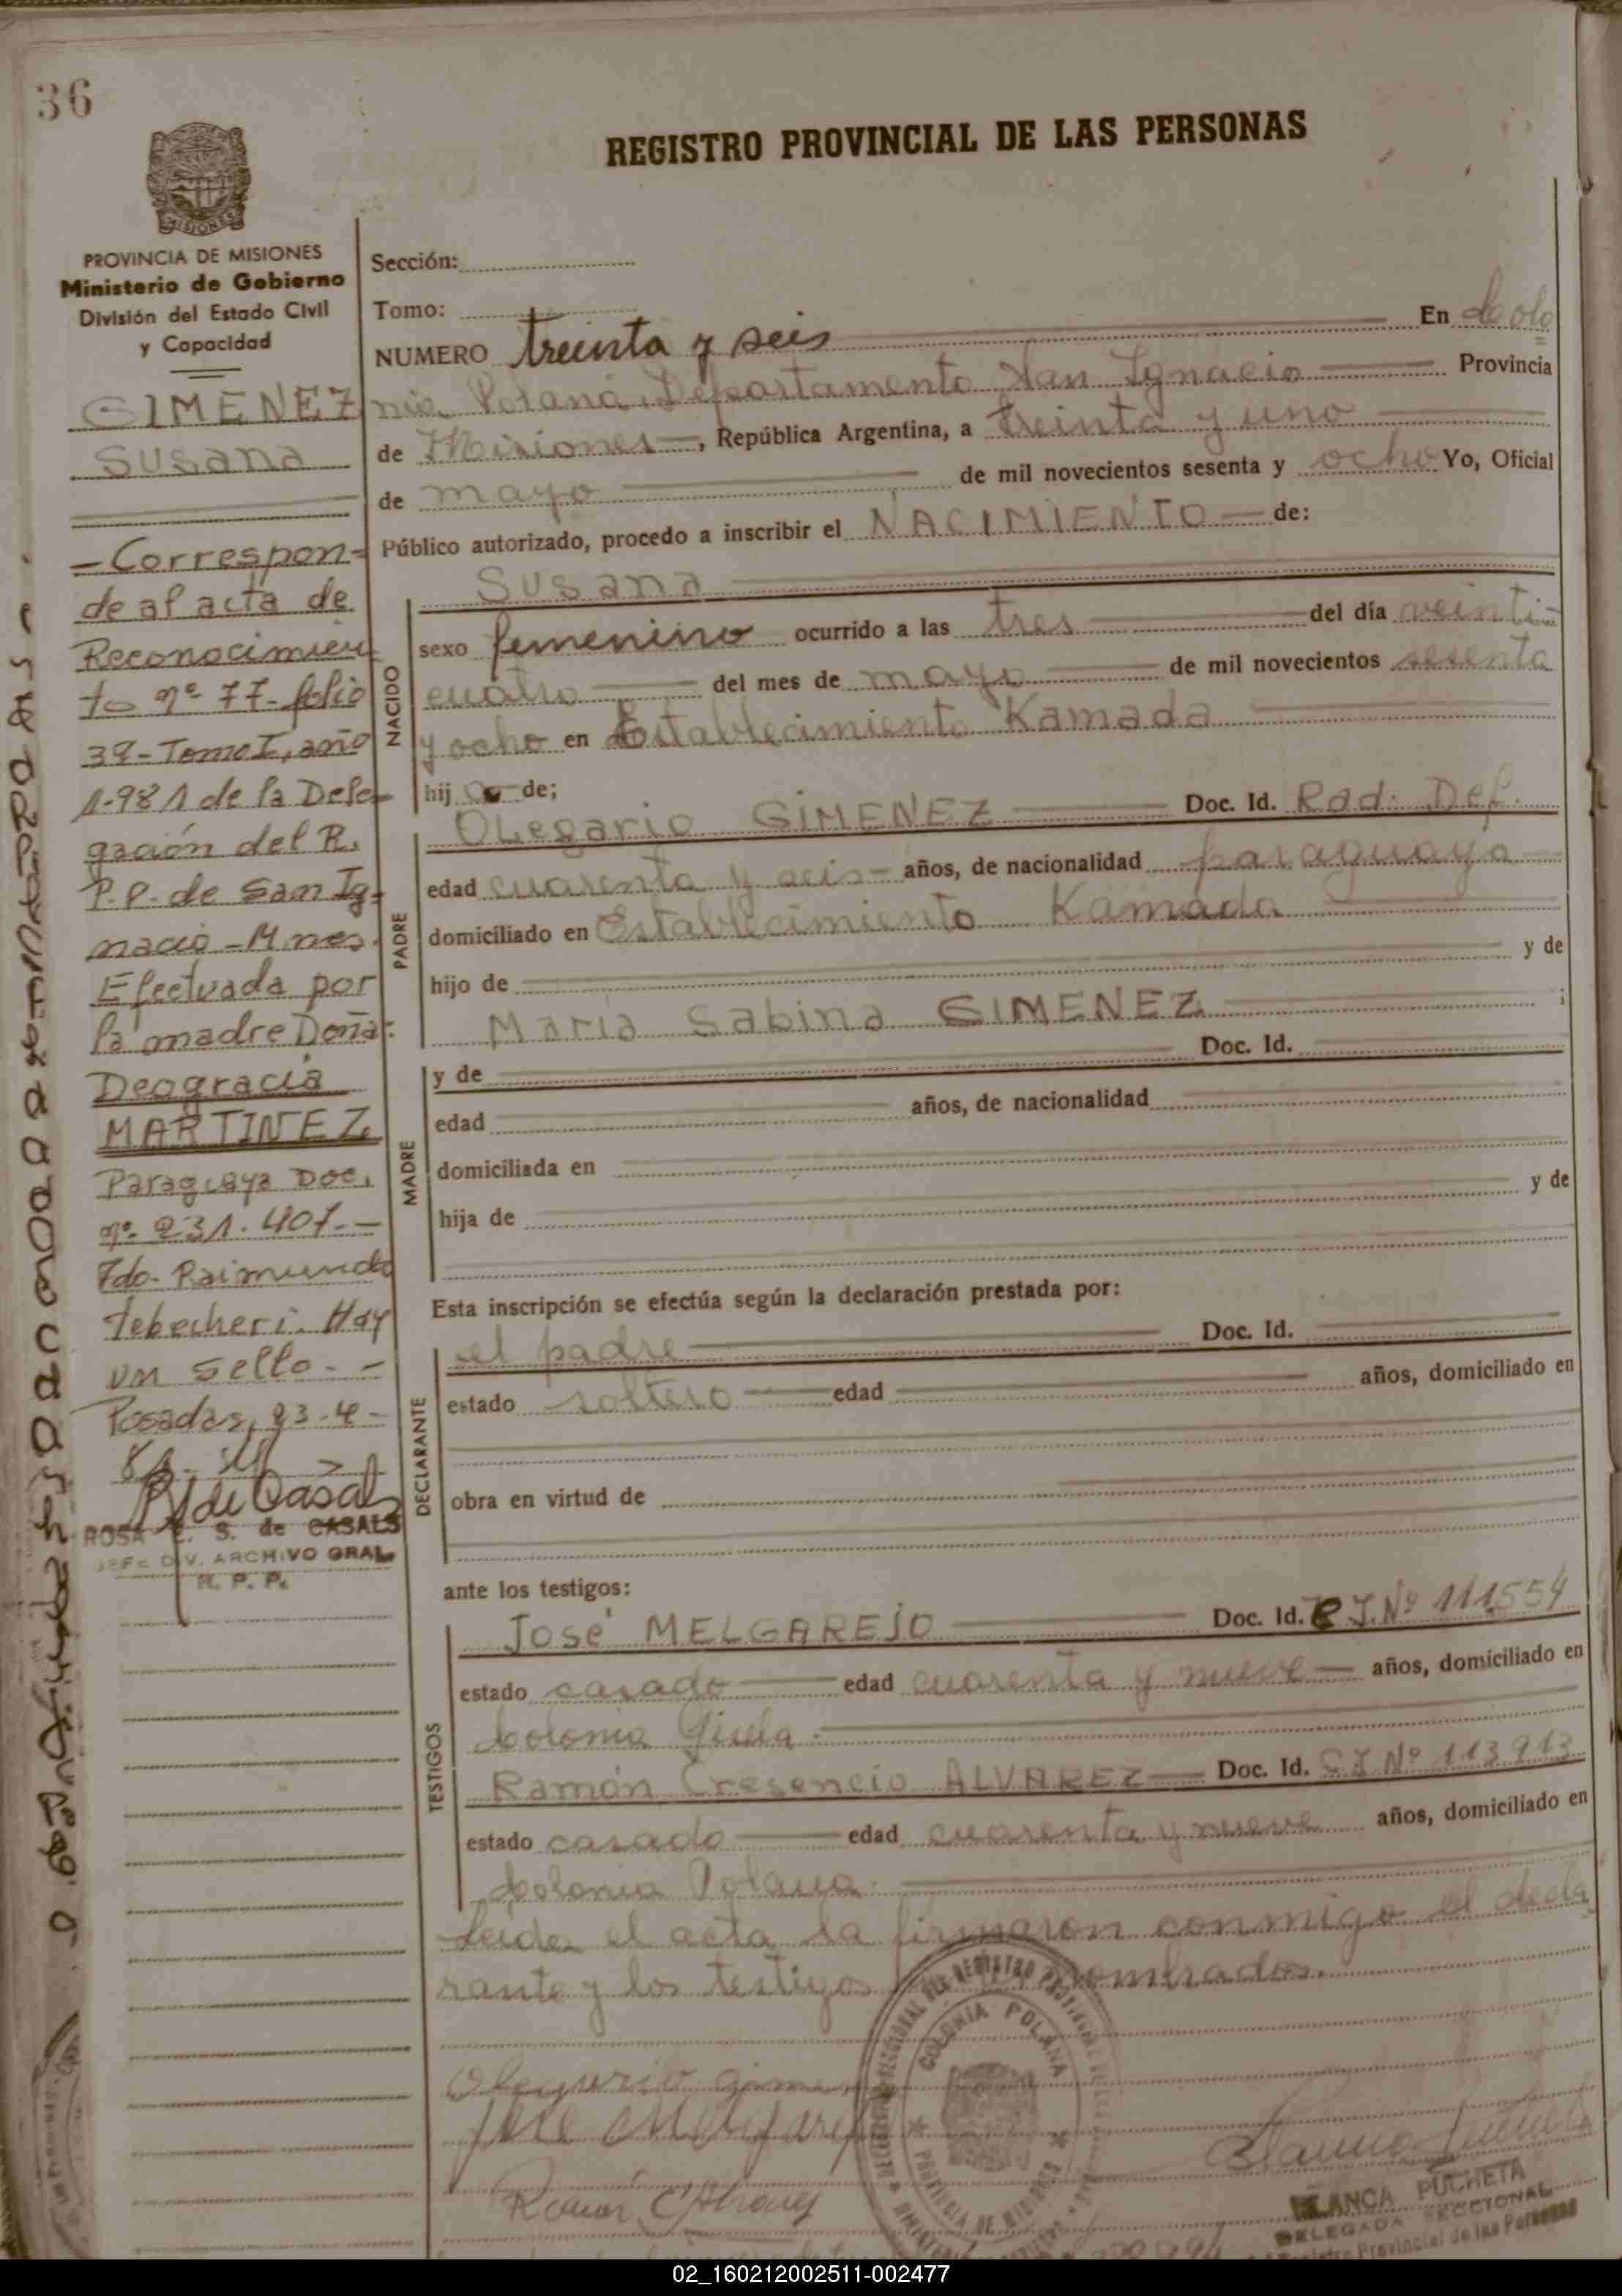 36
REGISTRO PROVINCIAL DE LAS PERSONAS
PROVINCIA DE MISIONES
Ministerio de Gobierno
División del Estado Civil
y Capacidad
GIMENEZ
Susana
- Correspon-
de al acta de
Reconocimien
to nº 77- folio
39- Tomo I, año
1.981 de la Dele-
gación del R.
P.P. de San Ig-
nacio - Mnes.
Efectuada por
la madre Doña:
Deogracia
MARTINEZ
Paraguaya Doc.
nº 231.407.-
Fdo- Raimundo
Hay
un sello.-
Posadas, 23-4-
81.-
ROSA E. S. de CASALS
JEFE DIV. ARCHIVO GRAL.
R. P. P.
Sección:
Tomo:
NUMERO treinta y seis En Colo
nia Polana, Departamento San Ignacio Provincia
de Misiones, República Argentina, a treinta y uno
de mayo de mil novecientos sesenta y ocho Yo, Oficial
Público autorizado, procedo a inscribir el NACIMIENTO de:
NACIDO
Susana
sexo femenino ocurrido a las tres del día veinti-
cuatro del mes de mayo de mil novecientos sesenta
y ocho en Establecimiento Kamada
hija de;
PADRE
Olegario GIMENEZ Doc. Id. Rad. Def.
edad cuarenta y seis años, de nacionalidad paraguaya
domiciliado en Establecimiento Kamada
hijo de y de
Maria Sabina GIMENEZ ;
MADRE
y de Doc. Id.
edad años, de nacionalidad
domiciliada en
hija de y de
Esta inscripción se efectúa según la declaración prestada por:
DECLARANTE
el padre Doc. Id.
estado soltero edad años, domiciliado en
obra en virtud de
ante los testigos:
TESTIGOS
José MELGAREJO Doc. Id. C I. Nº 111554
estado casado edad cuarenta y nueve años, domiciliado en
Colonia Gisela.
Ramón Cresencio ALVAREZ Doc. Id. C.I. Nº 113913
estado casado edad cuarenta y nueve años, domiciliado en
Colonia Polana.
Leída el acta la firmaron conmigo el decla
rante y los testigos nombrados.
COLONIA POLANA
PROVINCIA DE MISIONES
Olegario
BLANCA PUCHETA
DELEGADA SECCIONAL
Registro Provincial de las Personas
02_160212002511-002477